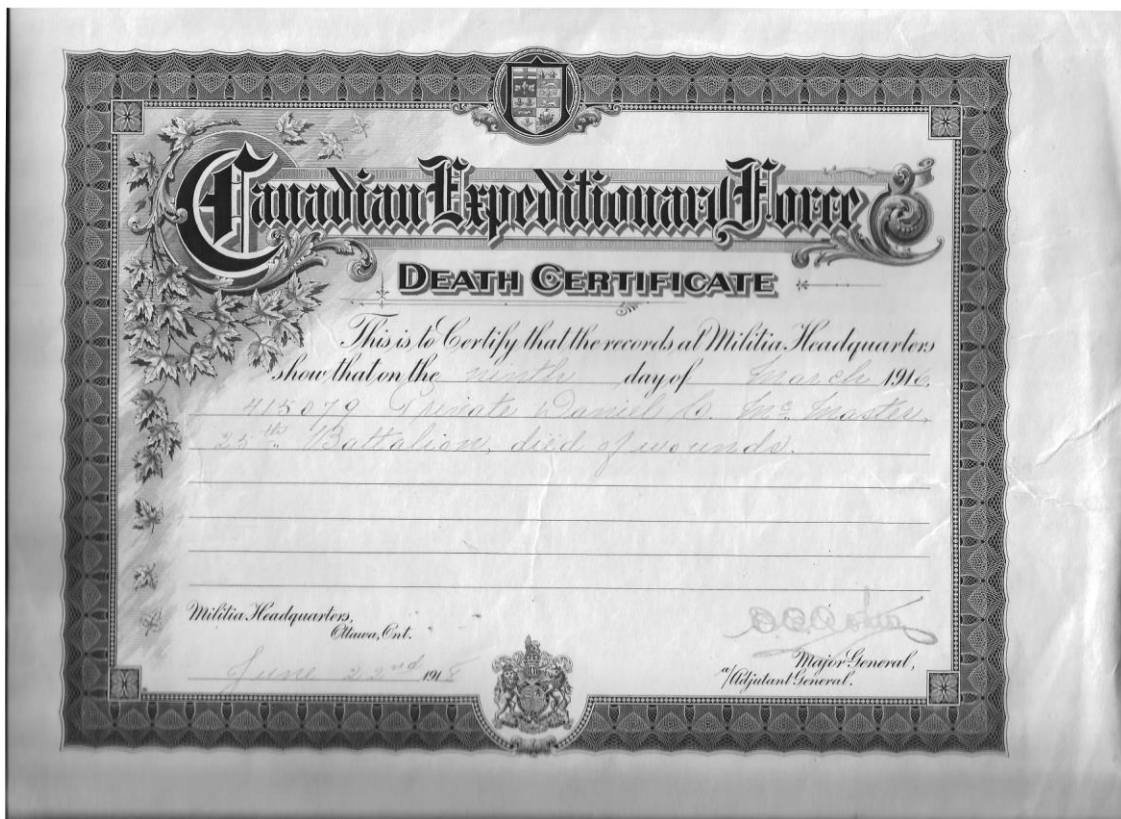 Canadian Expeditionary Force
DEATH CERTIFICATE
This is to Certify that the records at Militia Headquarters
show that on the ninth day of March 1916,
415079 Private Daniel Mc Master,
25th Battalion, died of wounds.
Militia Headquarters,
Ottawa, Ont.
June 22nd 1918
Major General,
a/Adjutant General.